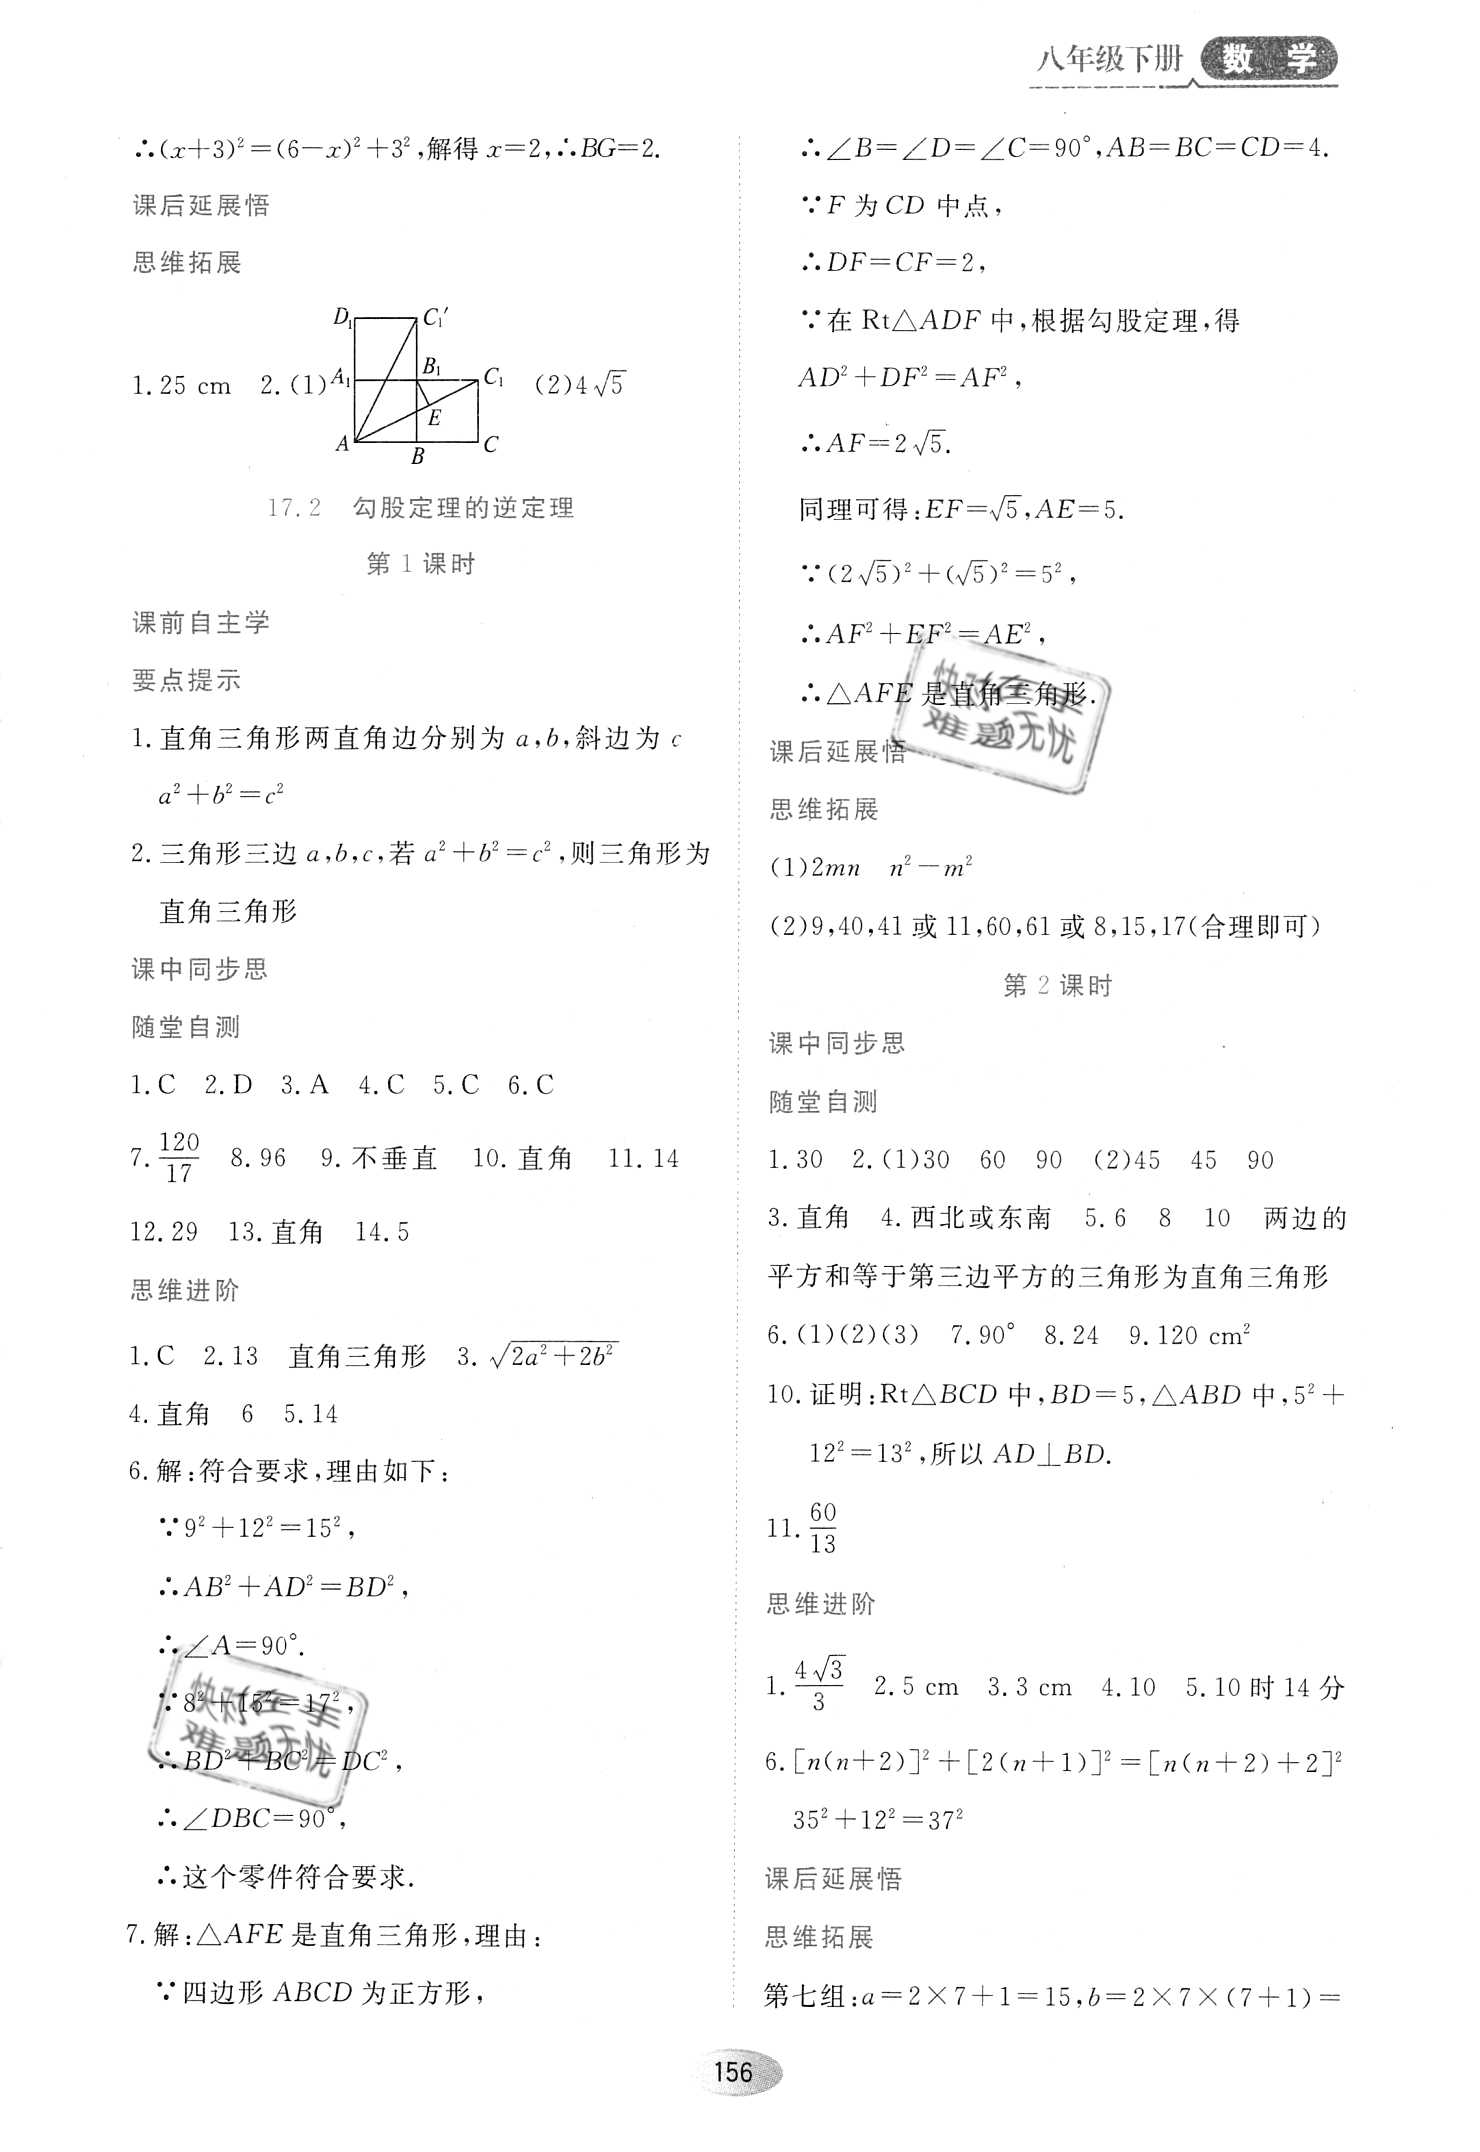 八年级下册 数 学
∴(x+3)²=(6−x)²+3²,解得 x=2,∴BG=2.
课后延展悟
思维拓展
D₁ C₁′
1.25 cm 2.(1) A₁ B₁ C₁ (2)4√5
E
A B C
17.2 勾股定理的逆定理
第 1 课时
课前自主学
要点提示
1.直角三角形两直角边分别为 a,b,斜边为 c
a²+b²=c²
2.三角形三边 a,b,c,若 a²+b²=c²,则三角形为
直角三角形
课中同步思
随堂自测
1.C 2.D 3.A 4.C 5.C 6.C
7.120/17 8.96 9.不垂直 10.直角 11.14
12.29 13.直角 14.5
思维进阶
1.C 2.13 直角三角形 3.√(2a²+2b²)
4.直角 6 5.14
6.解:符合要求,理由如下:
∵9²+12²=15²,
∴AB²+AD²=BD²,
∴∠A=90°.
∵8²+15²=17²,
∴BD²+BC²=DC²,
∴∠DBC=90°,
∴这个零件符合要求.
7.解:△AFE 是直角三角形,理由:
∵四边形 ABCD 为正方形,
∴∠B=∠D=∠C=90°,AB=BC=CD=4.
∵F 为 CD 中点,
∴DF=CF=2,
∵在 Rt△ADF 中,根据勾股定理,得
AD²+DF²=AF²,
∴AF=2√5.
同理可得:EF=√5,AE=5.
∵(2√5)²+(√5)²=5²,
∴AF²+EF²=AE²,
∴△AFE 是直角三角形.
课后延展悟
思维拓展
(1)2mn n²−m²
(2)9,40,41 或 11,60,61 或 8,15,17(合理即可)
第 2 课时
课中同步思
随堂自测
1.30 2.(1)30 60 90 (2)45 45 90
3.直角 4.西北或东南 5.6 8 10 两边的
平方和等于第三边平方的三角形为直角三角形
6.(1)(2)(3) 7.90° 8.24 9.120 cm²
10.证明:Rt△BCD 中,BD=5,△ABD 中,5²+
12²=13²,所以 AD⊥BD.
11.60/13
思维进阶
1.4√3/3 2.5 cm 3.3 cm 4.10 5.10 时 14 分
6.[n(n+2)]²+[2(n+1)]²=[n(n+2)+2]²
35²+12²=37²
课后延展悟
思维拓展
第七组:a=2×7+1=15,b=2×7×(7+1)=
156
快对在手
难题无忧
快对在手
难题无忧